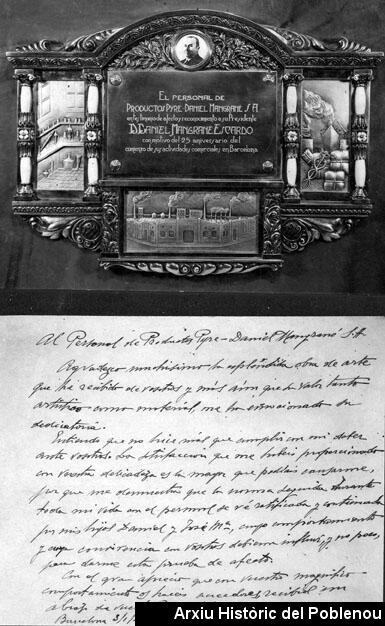 EL PERSONAL DE
PRODUCTOS PYRE-DANIEL MANGRANE S.A.
en testimonio de afecto y reconocimiento a su Presidente
D. DANIEL MANGRANE ESCARDO
con motivo del 25 aniversario del
comienzo de sus actividades comerciales en Barcelona
Al Personal de Productos Pyre-Daniel Mangrané S.A
Agradezco muchísimo la espléndida obra de arte
que he recibido de vosotros y más aún, que su valor tanto
artístico como material, me ha emocionado su
dedicatoria.
Entiendo que no hice más que cumplir con mi deber
ante vosotros. La satisfacción que me habeis proporcionado
con vuestra delicadeza es la mayor que podíais
por que me demuestra que la norma seguida durante
toda mi vida con el personal se vé ratificada y continuada
por mis hijos Daniel y José Mª, cuyo comportamiento
y convivencia con vosotros debieron influir, y no poco,
para darme esta prueba de afecto.
Con el gran aprecio que con vuestro magnífico
comportamiento os haceis acreedores, recibid un
abrazo de
Barcelona 3/1/
Arxiu Històric del Poblenou